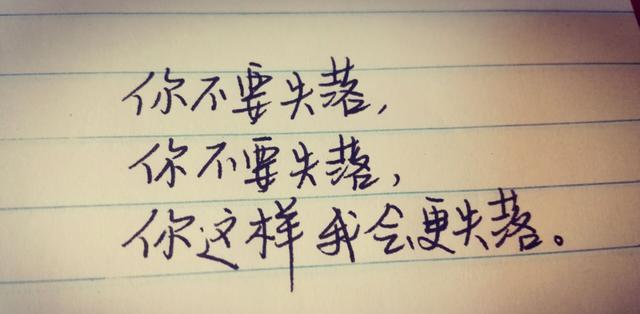 你不要失落,
你不要失落,
你这样我会更失落。